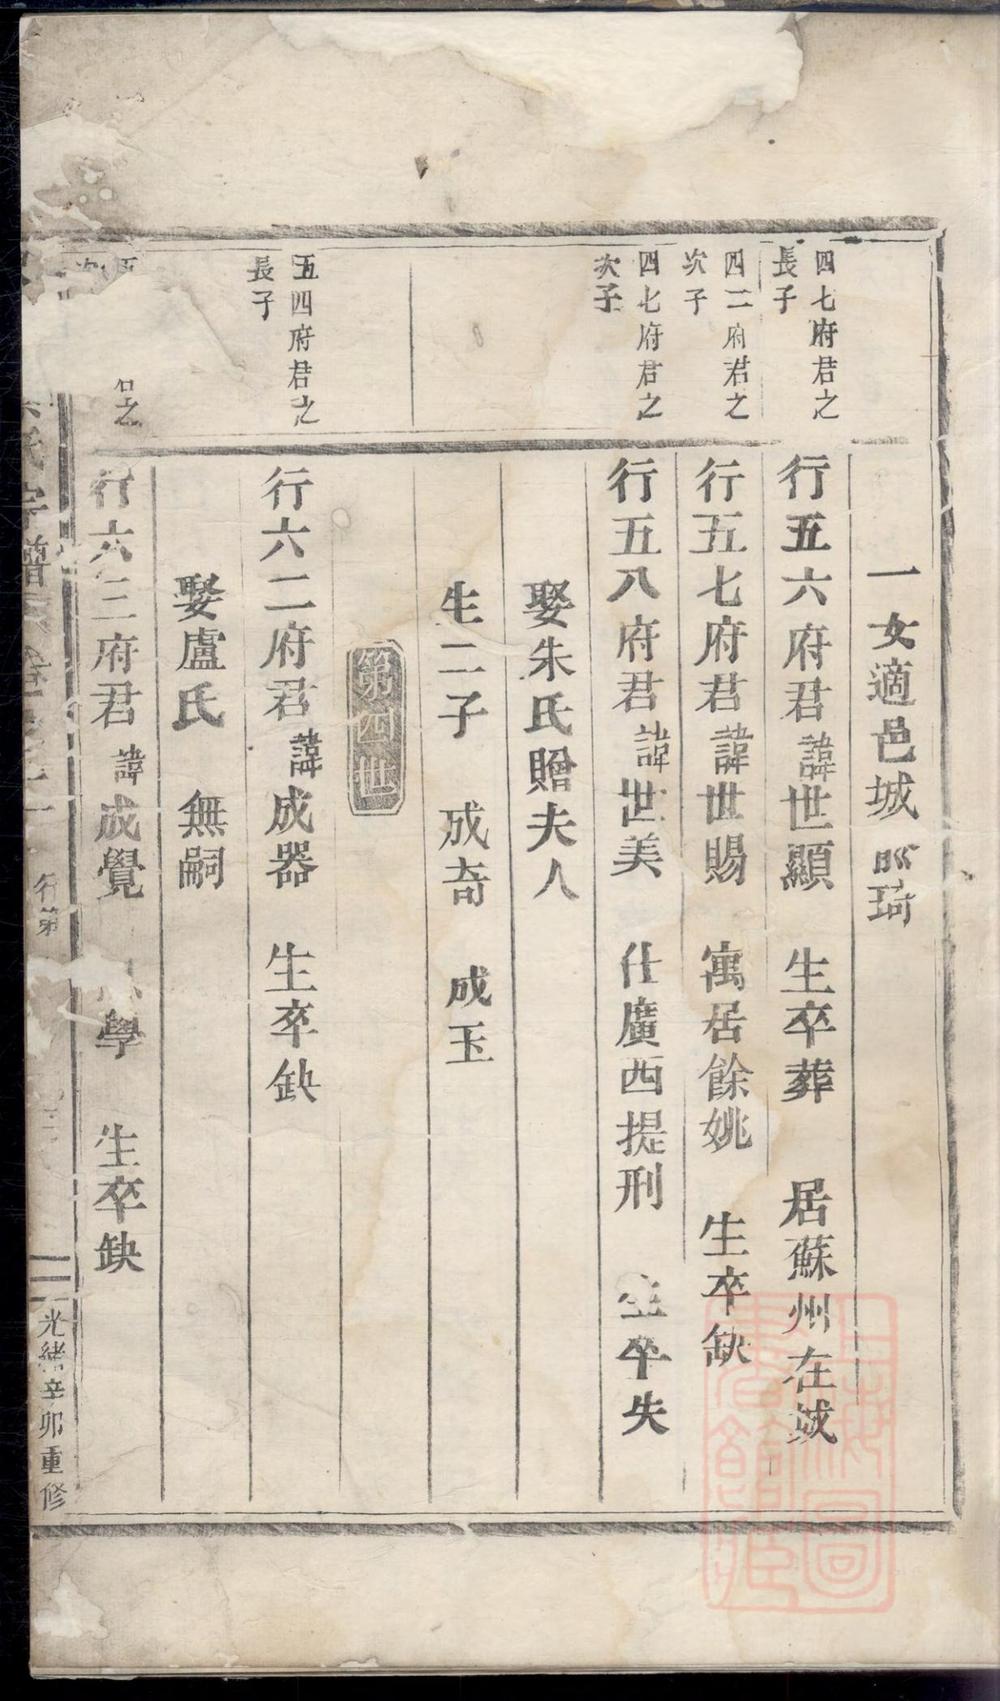 一女適邑城 琦
四七府君之
長子
行五六府君諱世顯 生卒葬 居蘇州在城
四二府君之
次子
行五七府君諱世賜 寓居餘姚 生卒缺
四七府君之
次子
行五八府君諱世美 仕廣西提刑 生卒失
娶朱氏贈夫人
生二子 成奇 成玉
第四世
五四府君之
長子
行六二府君諱成器 生卒缺
娶盧氏 無嗣
之
次
行六三府君諱成覺 學 生卒缺
氏宗譜 行第
光緒辛卯重修
上海圖書館藏